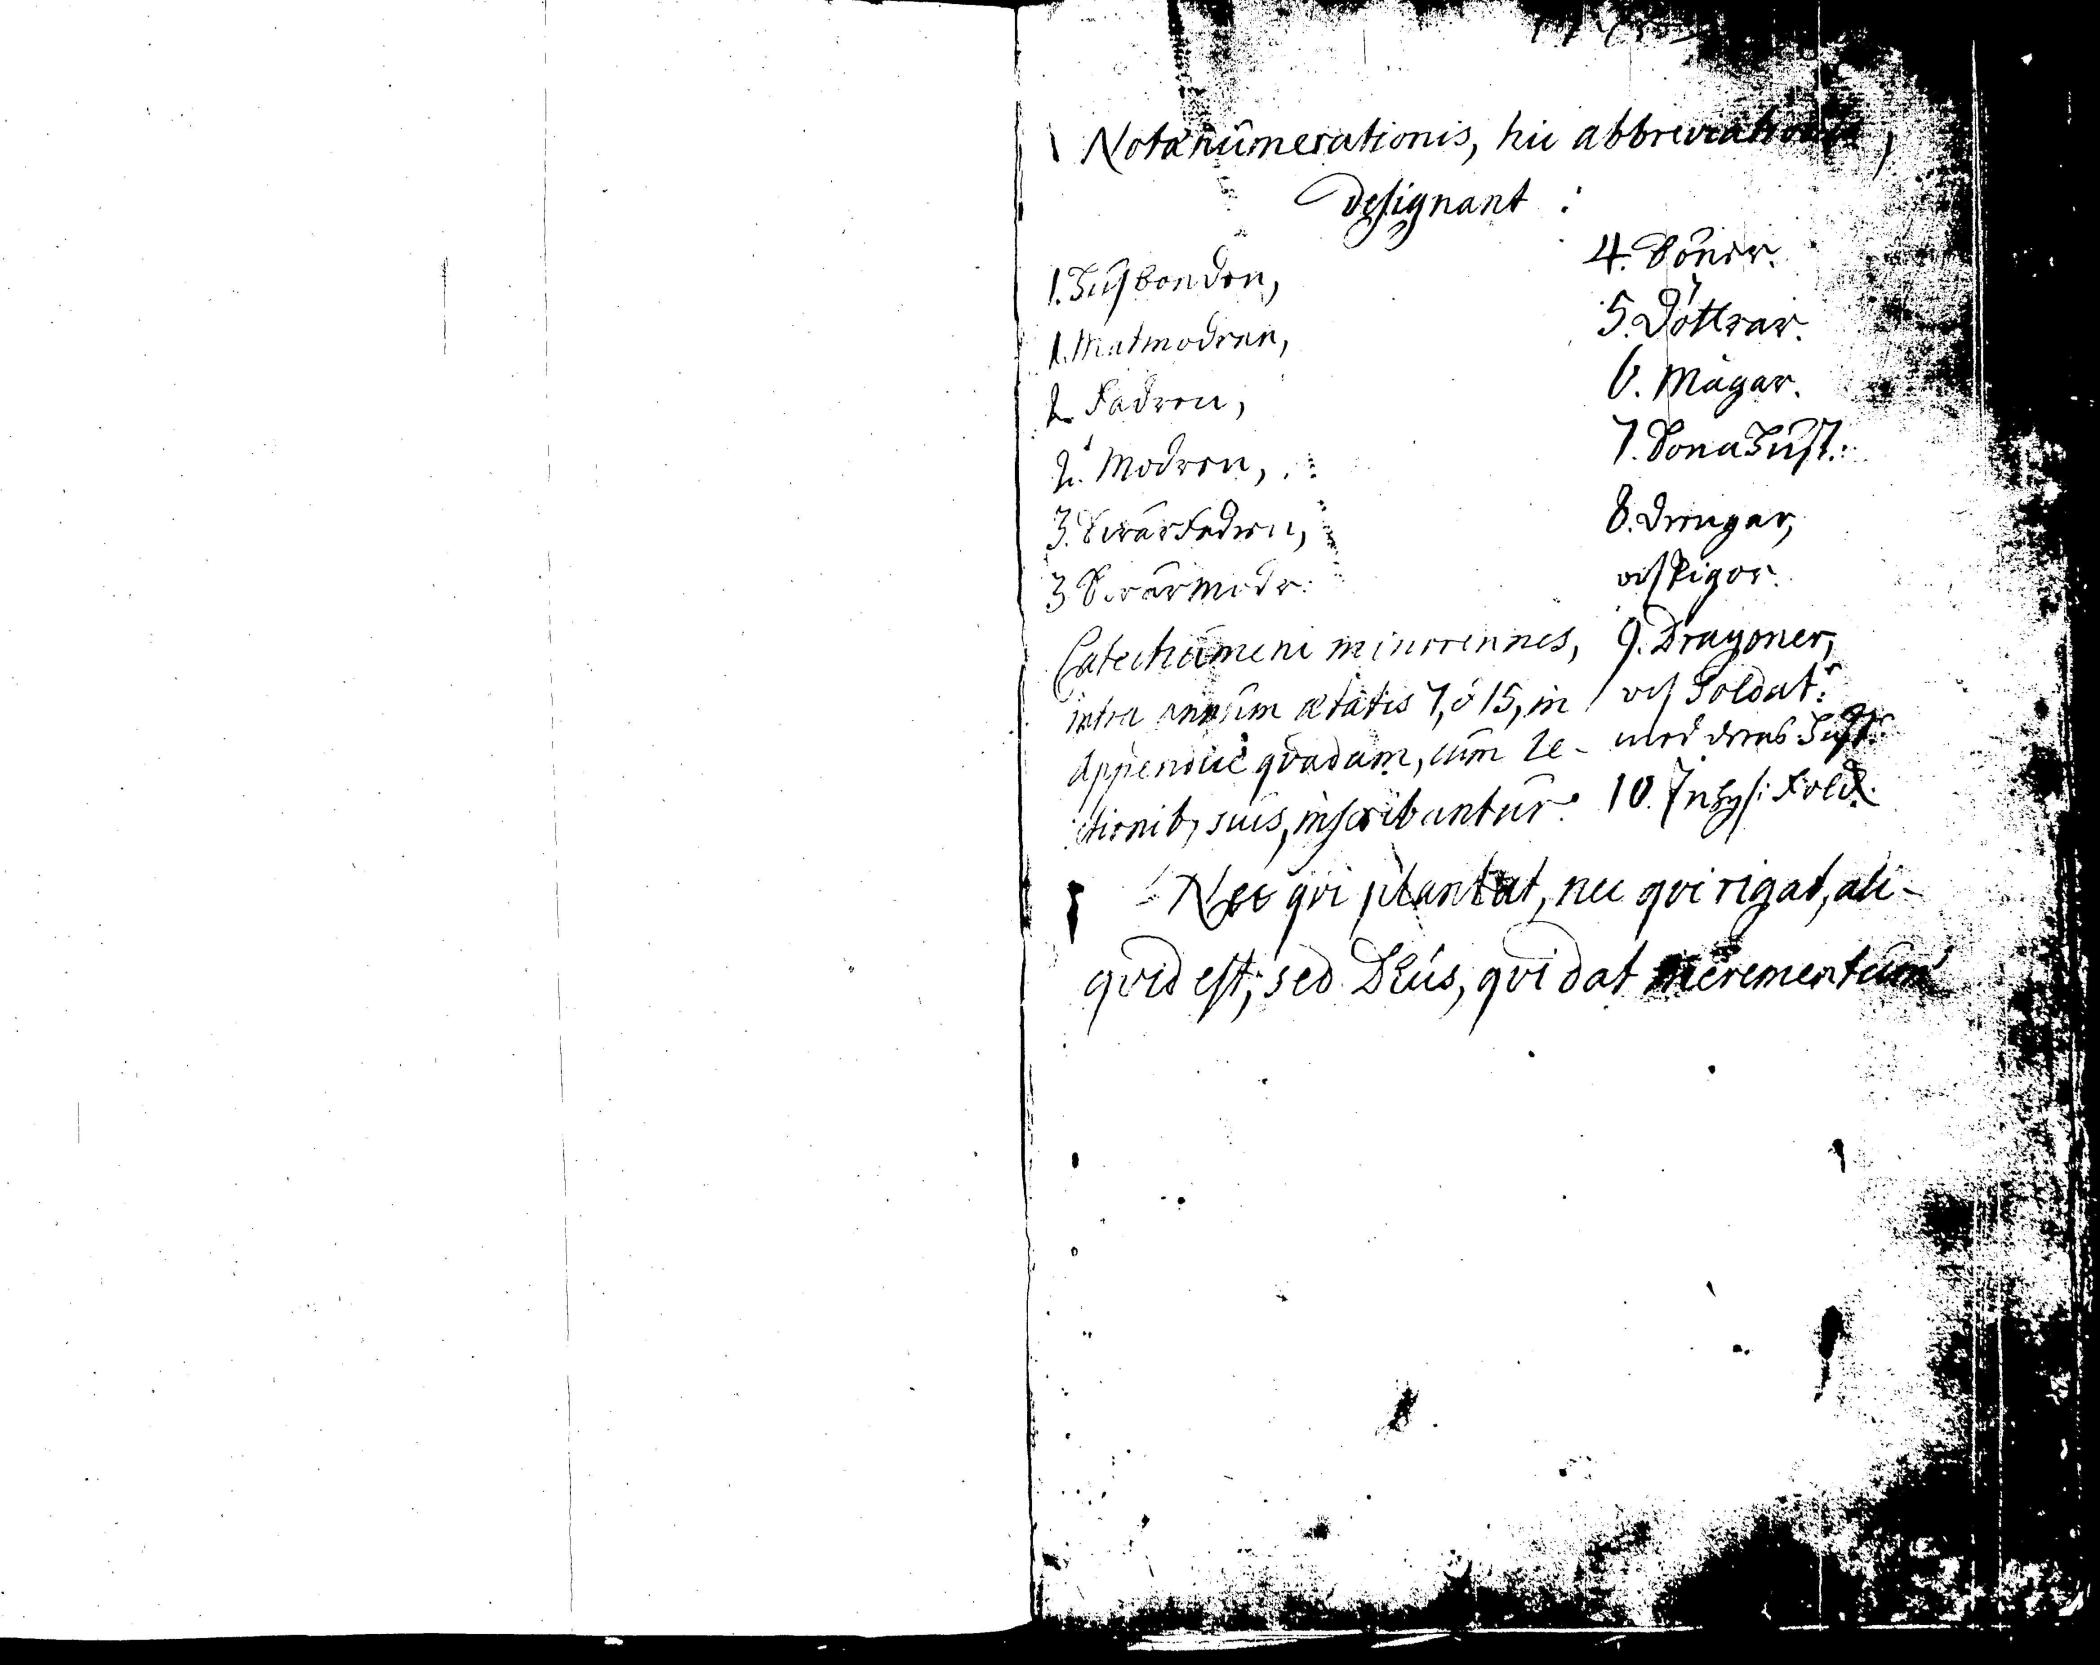 Notæ numerationis, hic abbreviationis,
designant:
1. Husbonden,
1. Matmodren,
2. Fadren,
2. Modren,
3. Swärfadren,
3 Swärmodr:
4. Söner.
5. Döttrar.
6. Mågar.
7. Sonahust:
8. Drengar,
och Pigor.
9. Dragoner,
och Soldat:
med deras Hust:
10. Inhys: Folck.
Catechumeni minorennes,
intra annum ætatis 7, & 15, in
appendice qvadam, cum le-
ctionib, suis, inscribuntur.
Nec qvi plantat, nec qvi rigat, ali-
qvid est; sed DEus, qvi dat incrementum